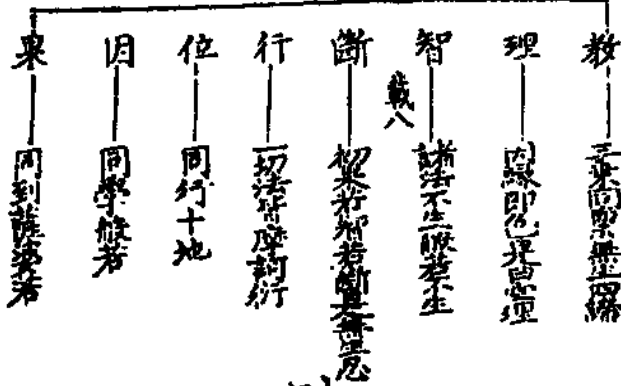 教 三乘同禀無生四諦
理 因緣即色是空理
智 諸法不生般若生
載八
斷 若智若斷是無生忍
行 一切法皆摩訶衍
位 同行十地
因 同學般若
果 同到薩婆若